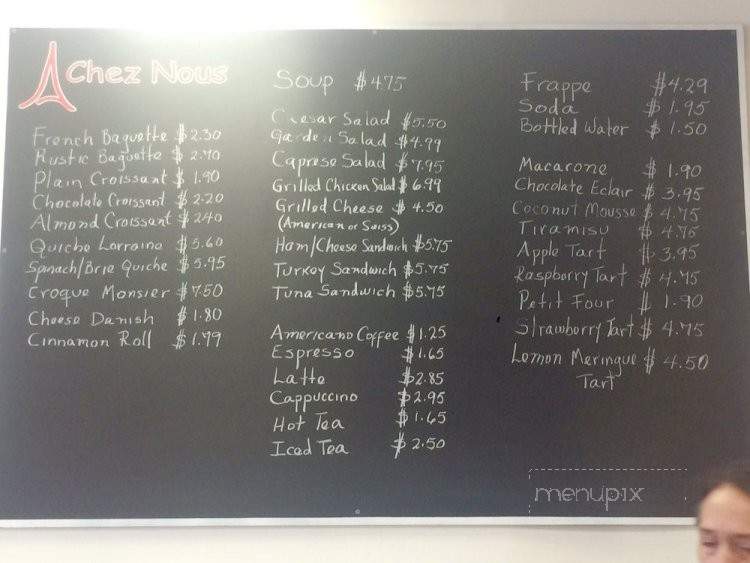 Chez Nous
French Baguette $2.30
Rustic Baguette $2.70
Plain Croissant $1.90
Chocolate Croissant $2.20
Almond Croissant $2.40
Quiche Lorraine $5.60
Spinach/Brie Quiche $5.95
Croque Monsier $7.50
Cheese Danish $1.80
Cinnamon Roll $1.99
Soup $4.75
Caesar Salad $5.50
Garden Salad $4.99
Caprese Salad $7.95
Grilled Chicken Salad $6.99
Grilled Cheese $4.50
(American or Swiss)
Ham/Cheese Sandwich $5.75
Turkey Sandwich $5.75
Tuna Sandwich $5.75
Americano Coffee $1.25
Espresso $1.65
Latte $2.85
Cappuccino $2.95
Hot Tea $1.65
Iced Tea $2.50
Frappe $4.29
Soda $1.95
Bottled Water $1.50
Macarone $1.90
Chocolate Eclair $3.95
Coconut Mousse $4.75
Tiramisu $4.75
Apple Tart $3.95
Raspberry Tart $4.75
Petit Four $1.90
Strawberry Tart $4.75
Lemon Meringue $4.50
Tart
menupix